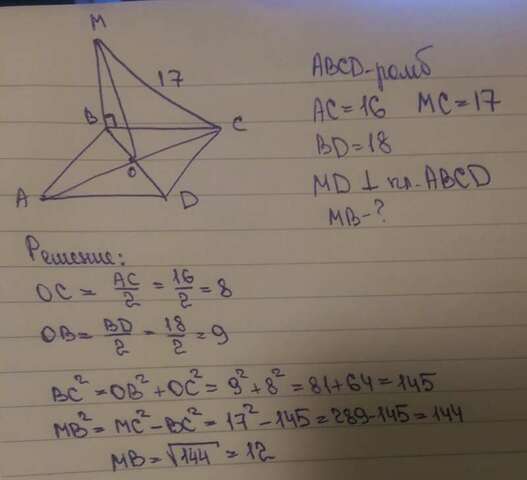 M
17
B
C
O
A
D
ABCD-ромб
AC=16 MC=17
BD=18
MD ⊥ пл. ABCD
MB-?
Решение:
OC = AC/2 = 16/2 = 8
OB = BD/2 = 18/2 = 9
BC² = OB² + OC² = 9² + 8² = 81 + 64 = 145
MB² = MC² - BC² = 17² - 145 = 289 - 145 = 144
MB = √144 = 12